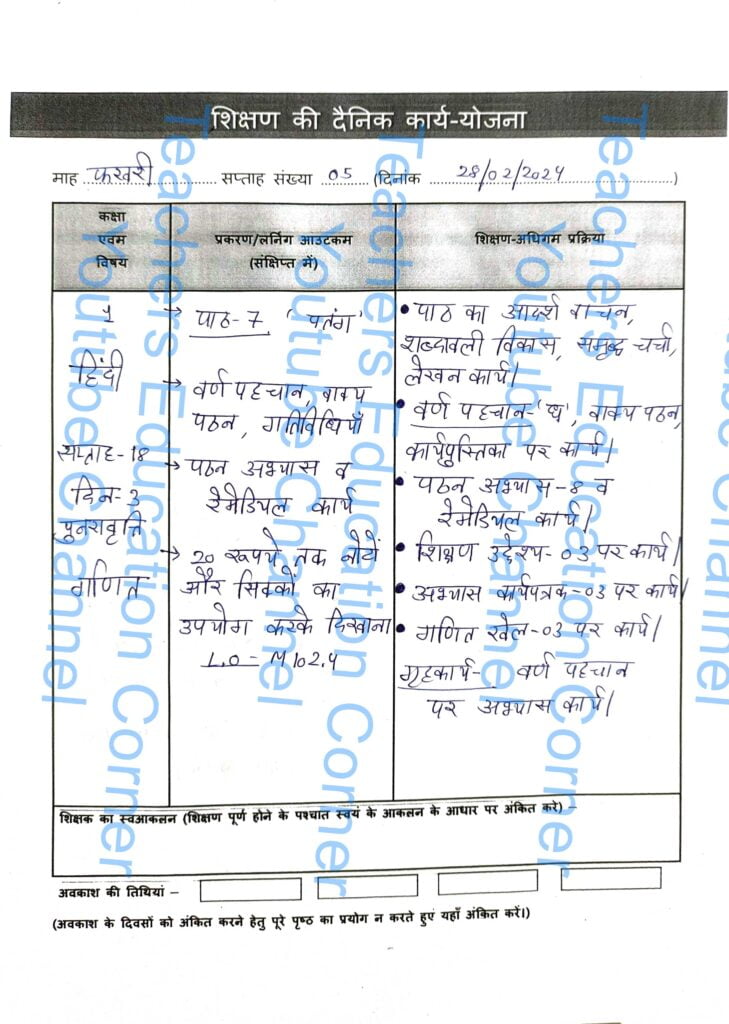 शिक्षण की दैनिक कार्य-योजना
माह फरवरी सप्ताह संख्या 05 (दिनांक 28/02/2024)
कक्षा
एवम
विषय
प्रकरण/लर्निंग आउटकम
(संक्षिप्त में)
शिक्षण-अधिगम प्रक्रिया
1
हिंदी
सप्ताह-18
दिन-3
पुनरावृत्ति
गणित
→ पाठ-7 'पतंग'
→ वर्ण पहचान, वाक्य
पठन, गतिविधियाँ
→ पठन अभ्यास व
रेमेडियल कार्य
→ 20 रूपये तक नोटों
और सिक्कों का
उपयोग करके दिखाना
L.O - M102.4
• पाठ का आदर्श वाचन,
शब्दावली विकास, समूह चर्चा,
लेखन कार्य।
• वर्ण पहचान-'ध', वाक्य पठन,
कार्यपुस्तिका पर कार्य।
• पठन अभ्यास-8 व
रेमेडियल कार्य।
• शिक्षण उद्देश्य-03 पर कार्य।
• अभ्यास कार्यपत्रक-03 पर कार्य।
• गणित खेल-03 पर कार्य।
गृहकार्य- वर्ण पहचान
पर अभ्यास कार्य।
शिक्षक का स्वआकलन (शिक्षण पूर्ण होने के पश्चात स्वयं के आकलन के आधार पर अंकित करे) –
अवकाश की तिथियां –
(अवकाश के दिवसों को अंकित करने हेतु पूरे पृष्ठ का प्रयोग न करते हुएं यहाँ अंकित करें।)
Teachers Education Corner
Youtube Channel
Teachers Education Corner
Youtube Channel
Teachers Education Corner
Youtube Channel
ube Channel